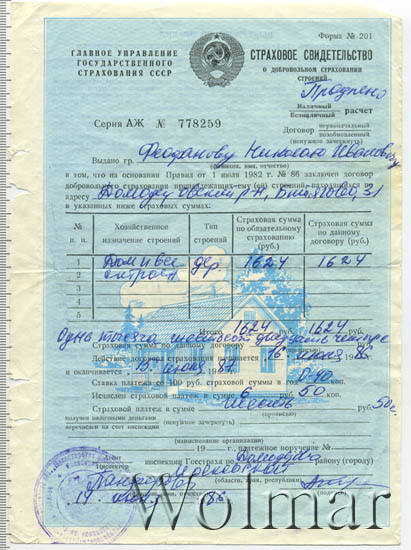 Форма № 201
ГЛАВНОЕ УПРАВЛЕНИЕ
ГОСУДАРСТВЕННОГО
СТРАХОВАНИЯ СССР
СТРАХОВОЕ СВИДЕТЕЛЬСТВО
О ДОБРОВОЛЬНОМ СТРАХОВАНИИ
СТРОЕНИЙ
Продлено
Наличный
Безналичный расчет
Серия АЖ № 778259
Договор первоначальный
возобновленный
(ненужное зачеркнуть)
Выдано гр. Николаю Ивановичу
(фамилия, имя, отчество)
в том, что на основании Правил от 1 июля 1982 г. № 86 заключен договор
добровольного страхования принадлежащих ему (ей) строений, находящихся по
адресу 31
в указанных ниже страховых суммах.
№ п. п. Хозяйственное назначение строений Тип строений Страховая сумма по обязательному страхованию (руб.) Страховая сумма по данному договору (руб.)
1 Дом и все дер. 1624 1624
2
3
4
5
Итого 1624 руб. 1624 руб.
Одна тысяча шестьсот двадцать четыре
Страховая сумма по данному договору
Действие договора страхования начинается 16 июля 1986
и оканчивается 15 июля 1987 г.
Ставка платежа со 100 руб. страховой суммы в год 0-40 коп.
Исчислен страховой платеж в сумме 6 руб. 50 коп.
Страховой платеж в сумме Шесть руб. 50 коп.
(прописью)
получен наличными деньгами
(ненужное зачеркнуть)
(наименование организации)
19 г., платежное поручение №
Инспектор инспекции Госстраха по району (городу)
(области, края, республики)
86
Wolmar